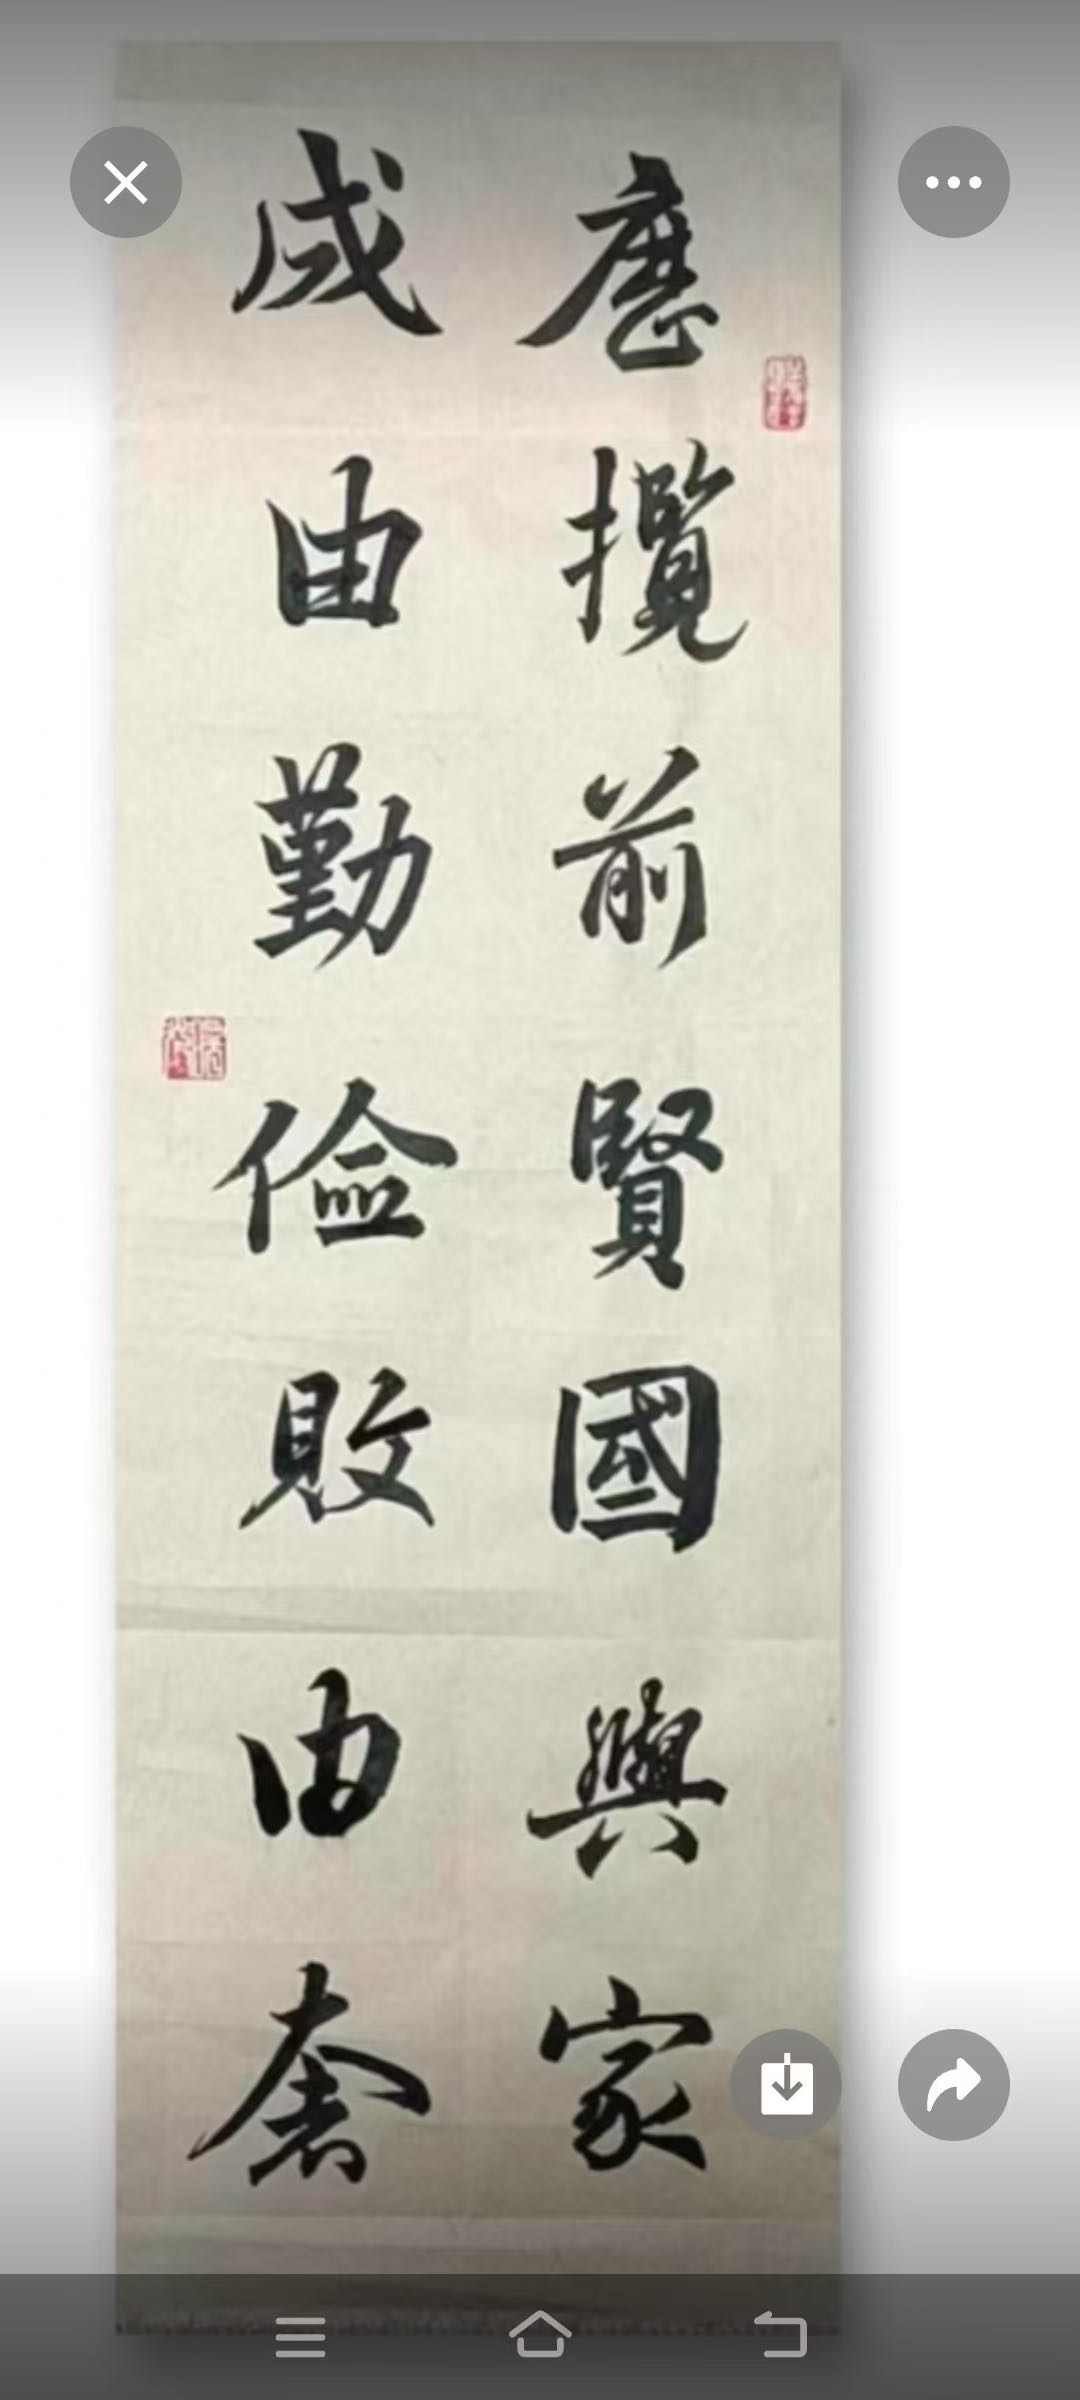 歷攬前賢國與家
成由勤儉敗由奢